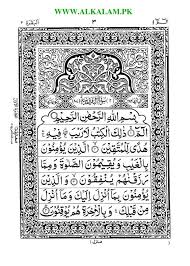 WWW.ALKALAM.PK
البقرة ٢
٣
الٓمّٓ ١
بِسْمِ اللّٰهِ الرَّحْمٰنِ الرَّحِیْمِ
الٓمّٓ ذٰلِكَ الْكِتٰبُ لَا رَیْبَ فِیْهِ
هُدًی لِّلْمُتَّقِیْنَ الَّذِیْنَ یُؤْمِنُوْنَ
بِالْغَیْبِ وَیُقِیْمُوْنَ الصَّلٰوةَ وَمِمَّا
رَزَقْنٰهُمْ یُنْفِقُوْنَ وَالَّذِیْنَ
یُؤْمِنُوْنَ بِمَاۤ اُنْزِلَ اِلَیْكَ وَمَاۤ اُنْزِلَ
مِنْ قَبْلِكَ وَبِالْاٰخِرَةِ هُمْ یُوْقِنُوْنَ